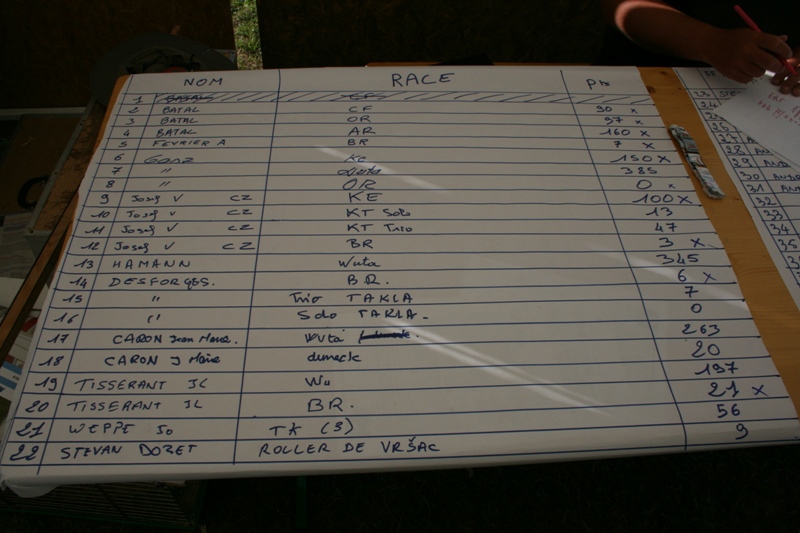 NOM RACE Pts
1 BATAL CF
2 BATAL CF 90 x
3 BATAL OR 97 x
4 BATAL AR 160 x
5 FEVRIER A BR 7 x
6 GANZ Ke 150 x
7 " 385
8 " OR 0 x
9 Josef V CZ KE 100 x
10 Josef V CZ KT Solo 13
11 Josef V CZ KT Trio 47
12 Josef V CZ BR 3 x
13 HAMANN Wuta 345
14 DESFORGES. B.R. 6 x
15 " Trio TAKLA 7
16 " Solo TAKLA- 0
17 CARON Jean Marie. Wuta 263
18 CARON J Marie duneck 20
19 TISSERANT JL Wu 197
20 TISSERANT JL BR. 21 x
21 WEPPE Jo TK (3) 56
22 STEVAN DOZET ROLLER DE VRŠAC 9
23
24
25
26
27
28
29
30
31
32
33
34